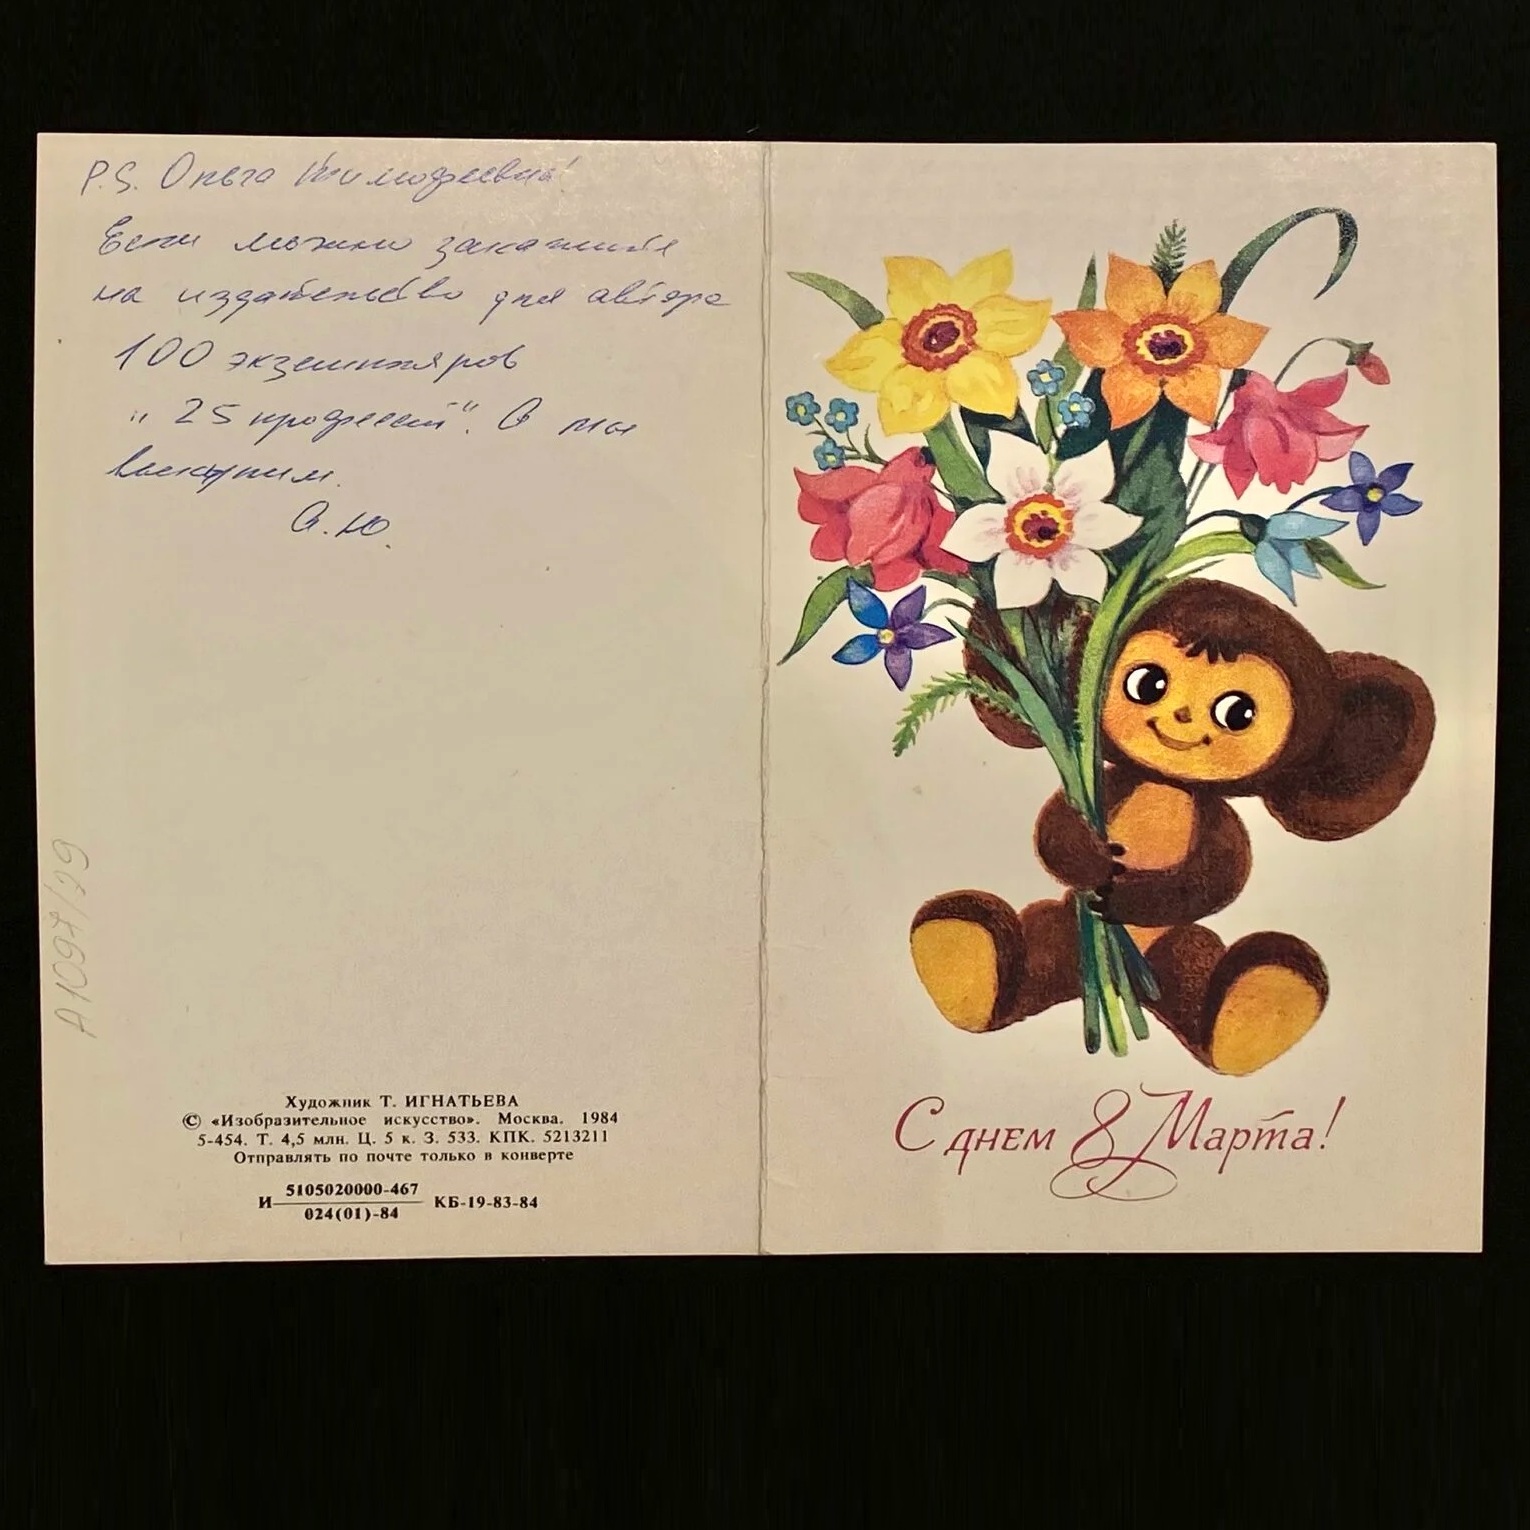 P.S. Ольга Тимофеевна!
Если можно закажите
на издательство для автора
100 экземпляров
"25 профессий". А мы
выкупим.
А.Ю.
А1097/29
Художник Т. ИГНАТЬЕВА
© «Изобразительное искусство». Москва. 1984
5-454. Т. 4,5 млн. Ц. 5 к. З. 533. КПК. 5213211
Отправлять по почте только в конверте
И 5105020000-467 КБ-19-83-84
024(01)-84
С днем 8 Марта!